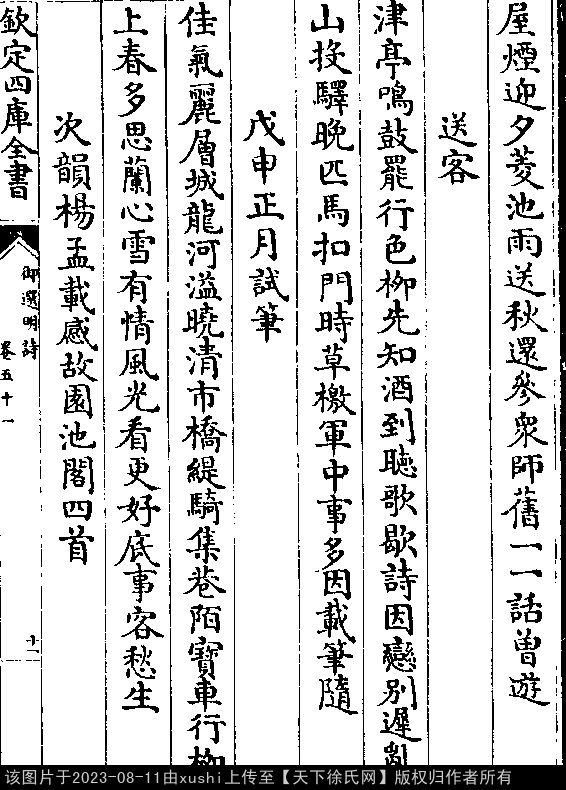 屋煙迎夕菱池雨送秋還參衆師舊一一話曾遊
送客
津亭鳴鼓罷行色柳先知酒到聽歌歇詩因戀別遲亂
山投驛晚匹馬扣門時草檄軍中事多因載筆隨
戊申正月試筆
佳氣麗層城龍河溢曉清市橋緹騎集巷陌寶車行柳
上春多思蘭心雪有情風光看更好底事客愁生
次韻楊孟載感故園池閣四首
欽定四庫全書
御選明詩
卷五十一
十一
该图片于2023-08-11由xushi上传至【天下徐氏网】版权归作者所有